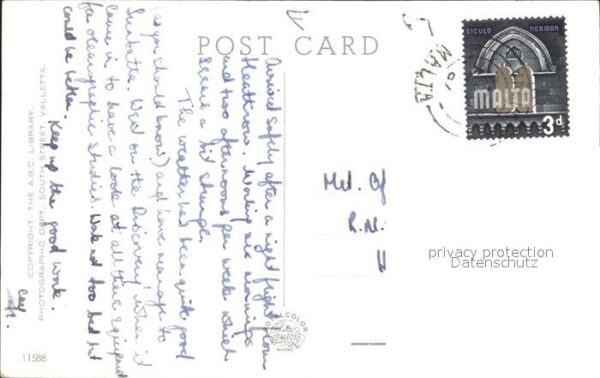 POST CARD
SICULO NORMAN
MALTA
3d
MALTA
Arrived safely after a night flight from
Heathrow. Working six mornings
and two afternoons per week which
seems a bit strange.
The weather has been quite good
(as you should know) and have managed to
Sunbathe. Was on the Discovery when it
came in to have a look at all the equipment
for oceanographic studies. Was not too bad but
could be better. Keep up the good work.
Met. Of
R.N.
privacy protection
Datenschutz
COPYRIGHT. THE A.B.C. LIBRARY.
PHOTOGRAPHIC DEPT. SOUTH STREET VALLETTA.
TOTALCOLOR
TOTALFOTO
MILANO
11588